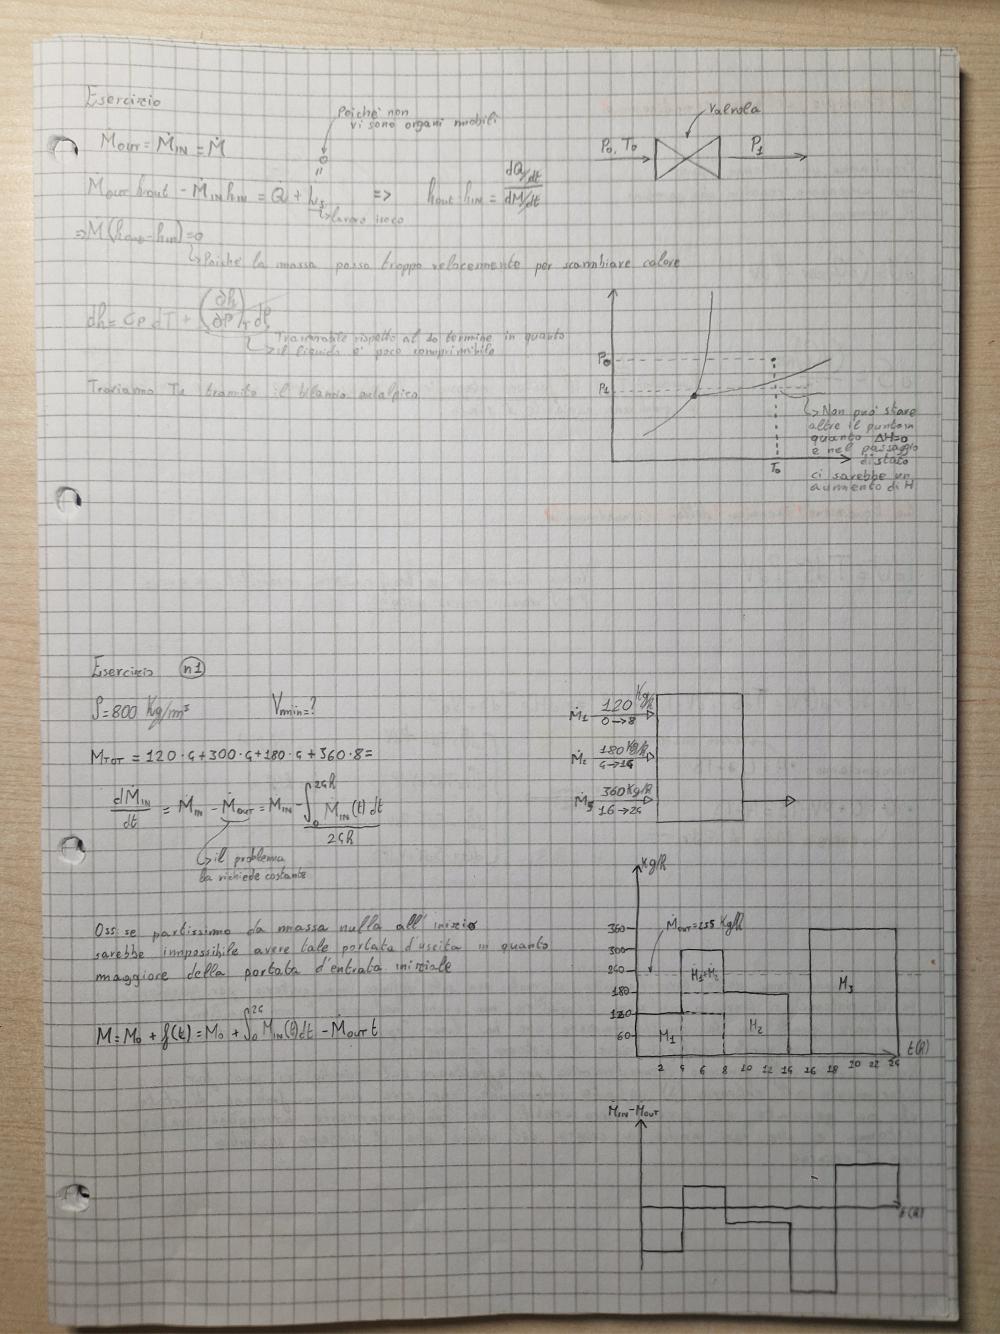 Esercizio
Poiché non
vi sono organi mobili
Valvola
Ṁout = Ṁin = Ṁ
0
P₀, T₀
P₁
Ṁout hout - Ṁin hin = Q̇ + Ls => hout - hin = dQ/dt / dM/dt
↳ lavoro isoco
=> Ṁ(hout - hin) = 0
↳ Poiché la massa passa troppo velocemente per scambiare calore
dh = CP dT + (∂h/∂P)T dP
↳ Trascurabile rispetto al 1o termine in quanto
il liquido è poco comprimibile
Troviamo T₁ tramite il bilancio entalpico
P₀
P₁
T₀
↳ Non può stare
oltre il punto in
quanto ΔH=0
e nel passaggio
di stato
ci sarebbe un
aumento di H
Esercizio n1
ρ = 800 Kg/m³ Vmin = ?
Mtot = 120·4 + 300·4 + 180·4 + 360·8 =
dMin/dt = Ṁin - Ṁout = Ṁin - ∫₀²⁴ʰ Ṁin(t) dt / 24h
↳ il problema
la richiede costante
Ṁ₁ 120 Kg/h
0→8
Ṁ₂ 180 Kg/h
4→14
Ṁ₃ 360 Kg/h
16→24
Oss: se partissimo da massa nulla all'inizio
sarebbe impossibile avere tale portata d'uscita in quanto
maggiore della portata d'entrata iniziale
M = M₀ + f(t) = M₀ + ∫₀²⁴ Ṁin(t)dt - Ṁout t
Kg/h
Ṁout = 255 Kg/h
360
300
240
180
120
60
M₁
M₂
M₃
2 4 6 8 10 12 14 16 18 20 22 24
t(h)
Ṁin - Ṁout
t(h)